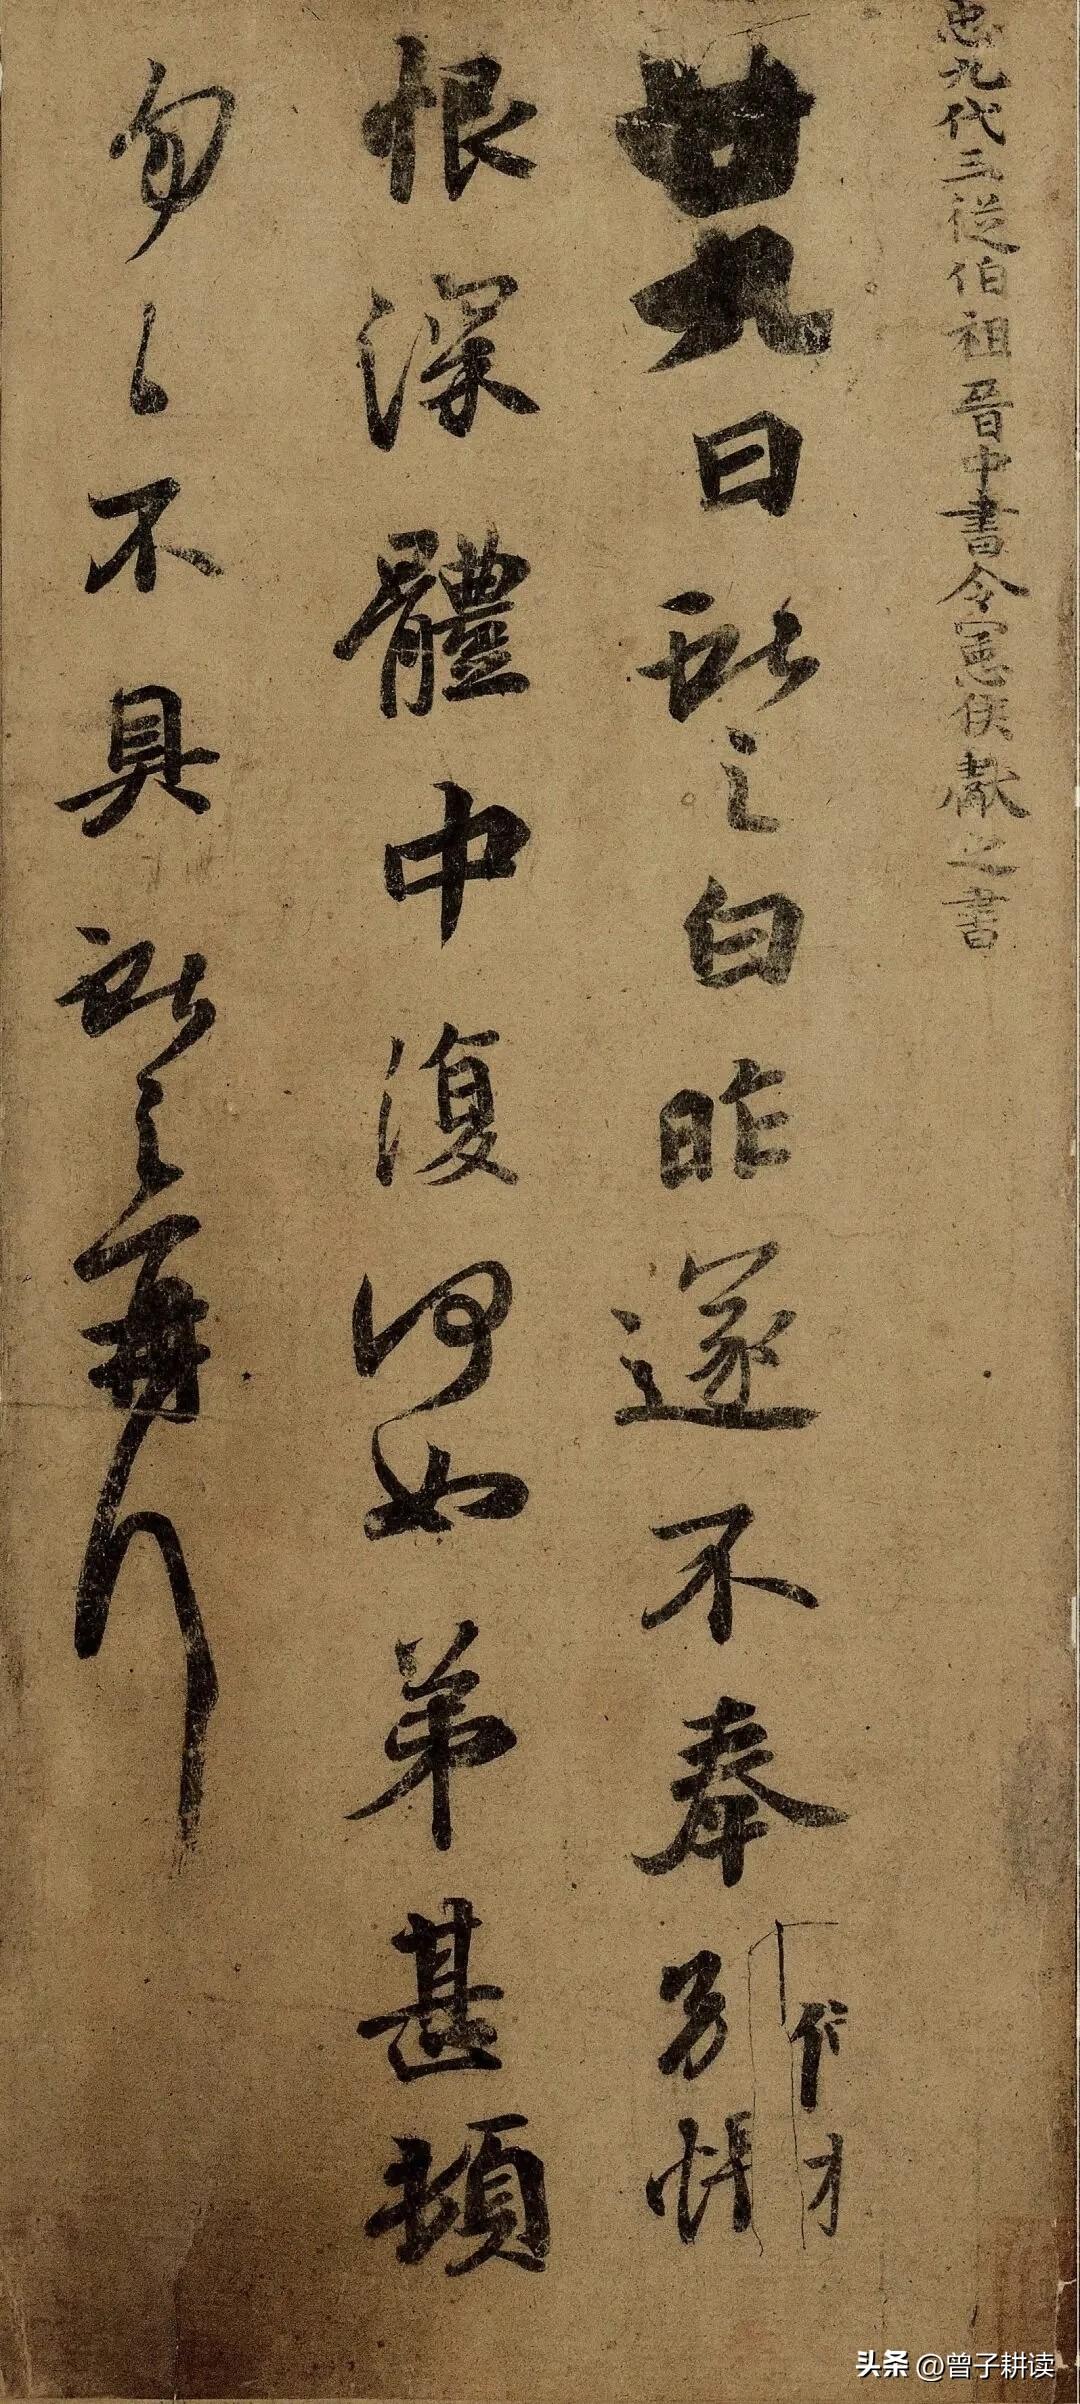 𢘑九代三從伯祖晉中書令憲侯獻之書
廿九日獻之白昨遂不奉別悵
恨深體中復何如弟甚頓
勿〻不具獻之再拜
头条 @曾子耕读